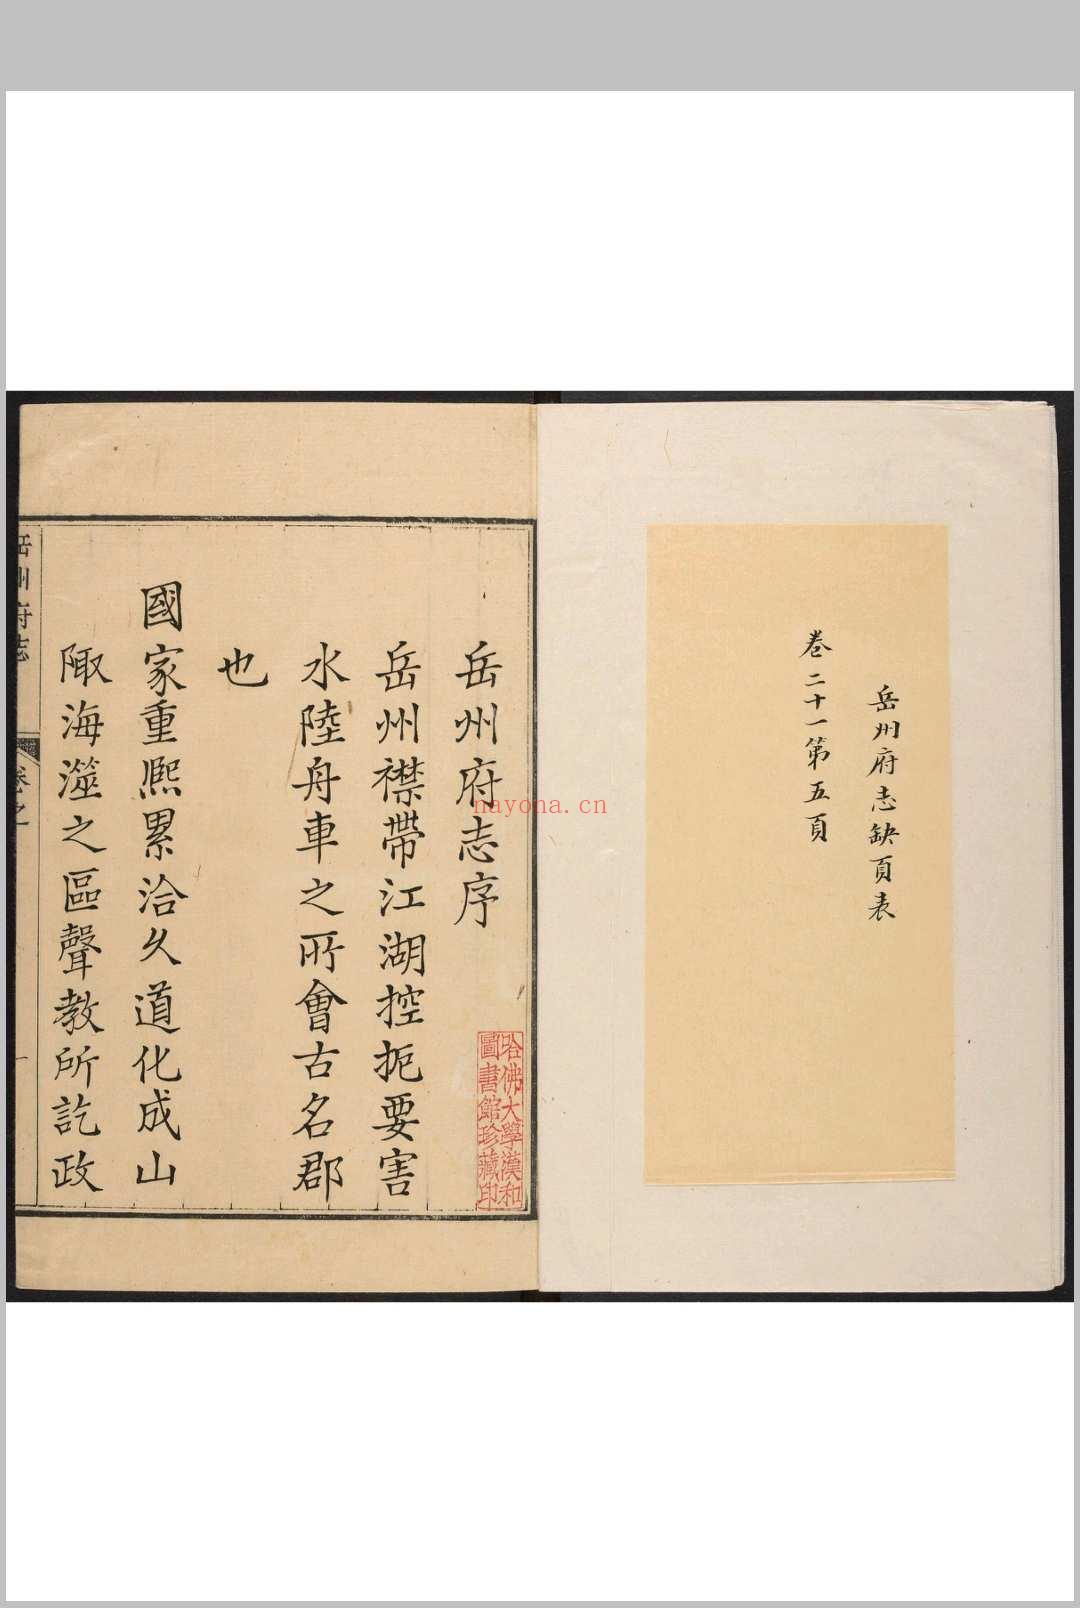 岳州府志缺頁表
卷二十一第五頁
岳州府志序
岳州襟帶江湖控扼要害
水陸舟車之所會古名郡
也
國家重熈累洽久道化成山
陬海澨之區聲教所訖政
岳州府志
卷之一
哈佛大學漢和
圖書館珍藏印
nayona.cn